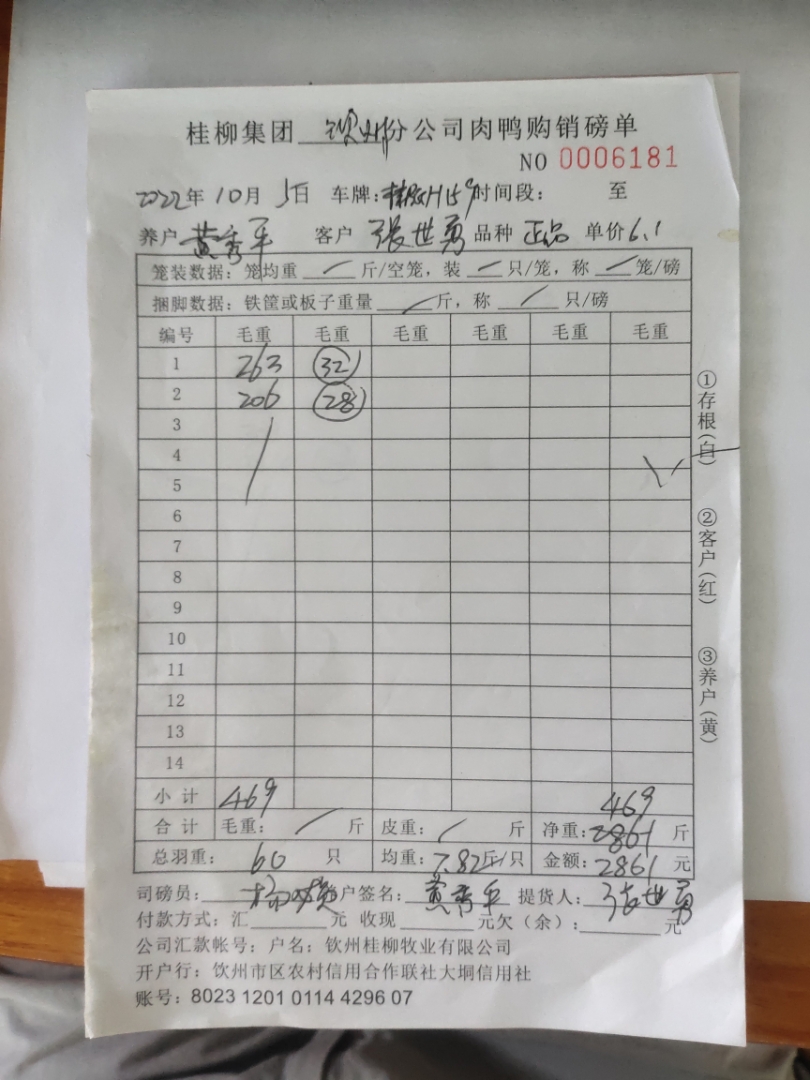 桂柳集团 钦州分公司肉鸭购销磅单
NO 0006181
2022年10月5日 车牌: 时间段: 至
养户 黄秀平 客户 张世勇 品种 正品 单价6.1
笼装数据: 笼均重 / 斤/空笼, 装 / 只/笼, 称 / 笼/磅
捆脚数据: 铁筐或板子重量 / 斤, 称 / 只/磅
编号 毛重 毛重 毛重 毛重 毛重 毛重
1 263 32
2 206 28
3
4
5
6
7
8
9
10
11
12
13
14
小计 469 469
合计 毛重: / 斤 皮重: / 斤 净重: 2861 斤
总羽重: 60 只 均重: 7.82斤/只 金额: 2861 元
司磅员: 户签名: 黄秀平 提货人: 张世勇
付款方式: 汇 元 收现 元欠(余): 元
公司汇款帐号: 户名: 钦州桂柳牧业有限公司
开户行: 钦州市区农村信用合作联社大垌信用社
账号: 8023 1201 0114 4296 07
①存根(白)
②客户(红)
③养户(黄)